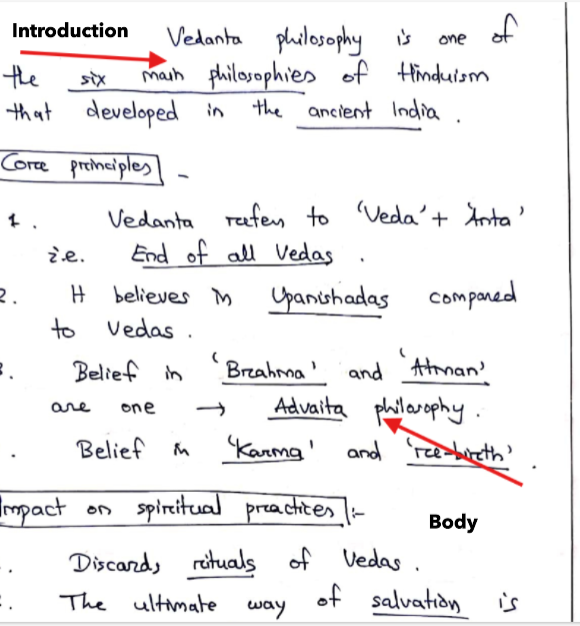 Introduction
Vedanta philosophy is one of
the six main philosophies of Hinduism
that developed in the ancient India .
Core principles -
1 . Vedanta refers to 'Veda' + 'Anta'
i.e. End of all Vedas .
2. It believes in Upanishadas compared
to Vedas .
3. Belief in 'Brahma' and 'Atman'
are one → Advaita philosophy .
. Belief in 'Karma' and 're-birth' .
Impact on spiritual practices :-
Body
. Discards rituals of Vedas .
. The ultimate way of salvation is